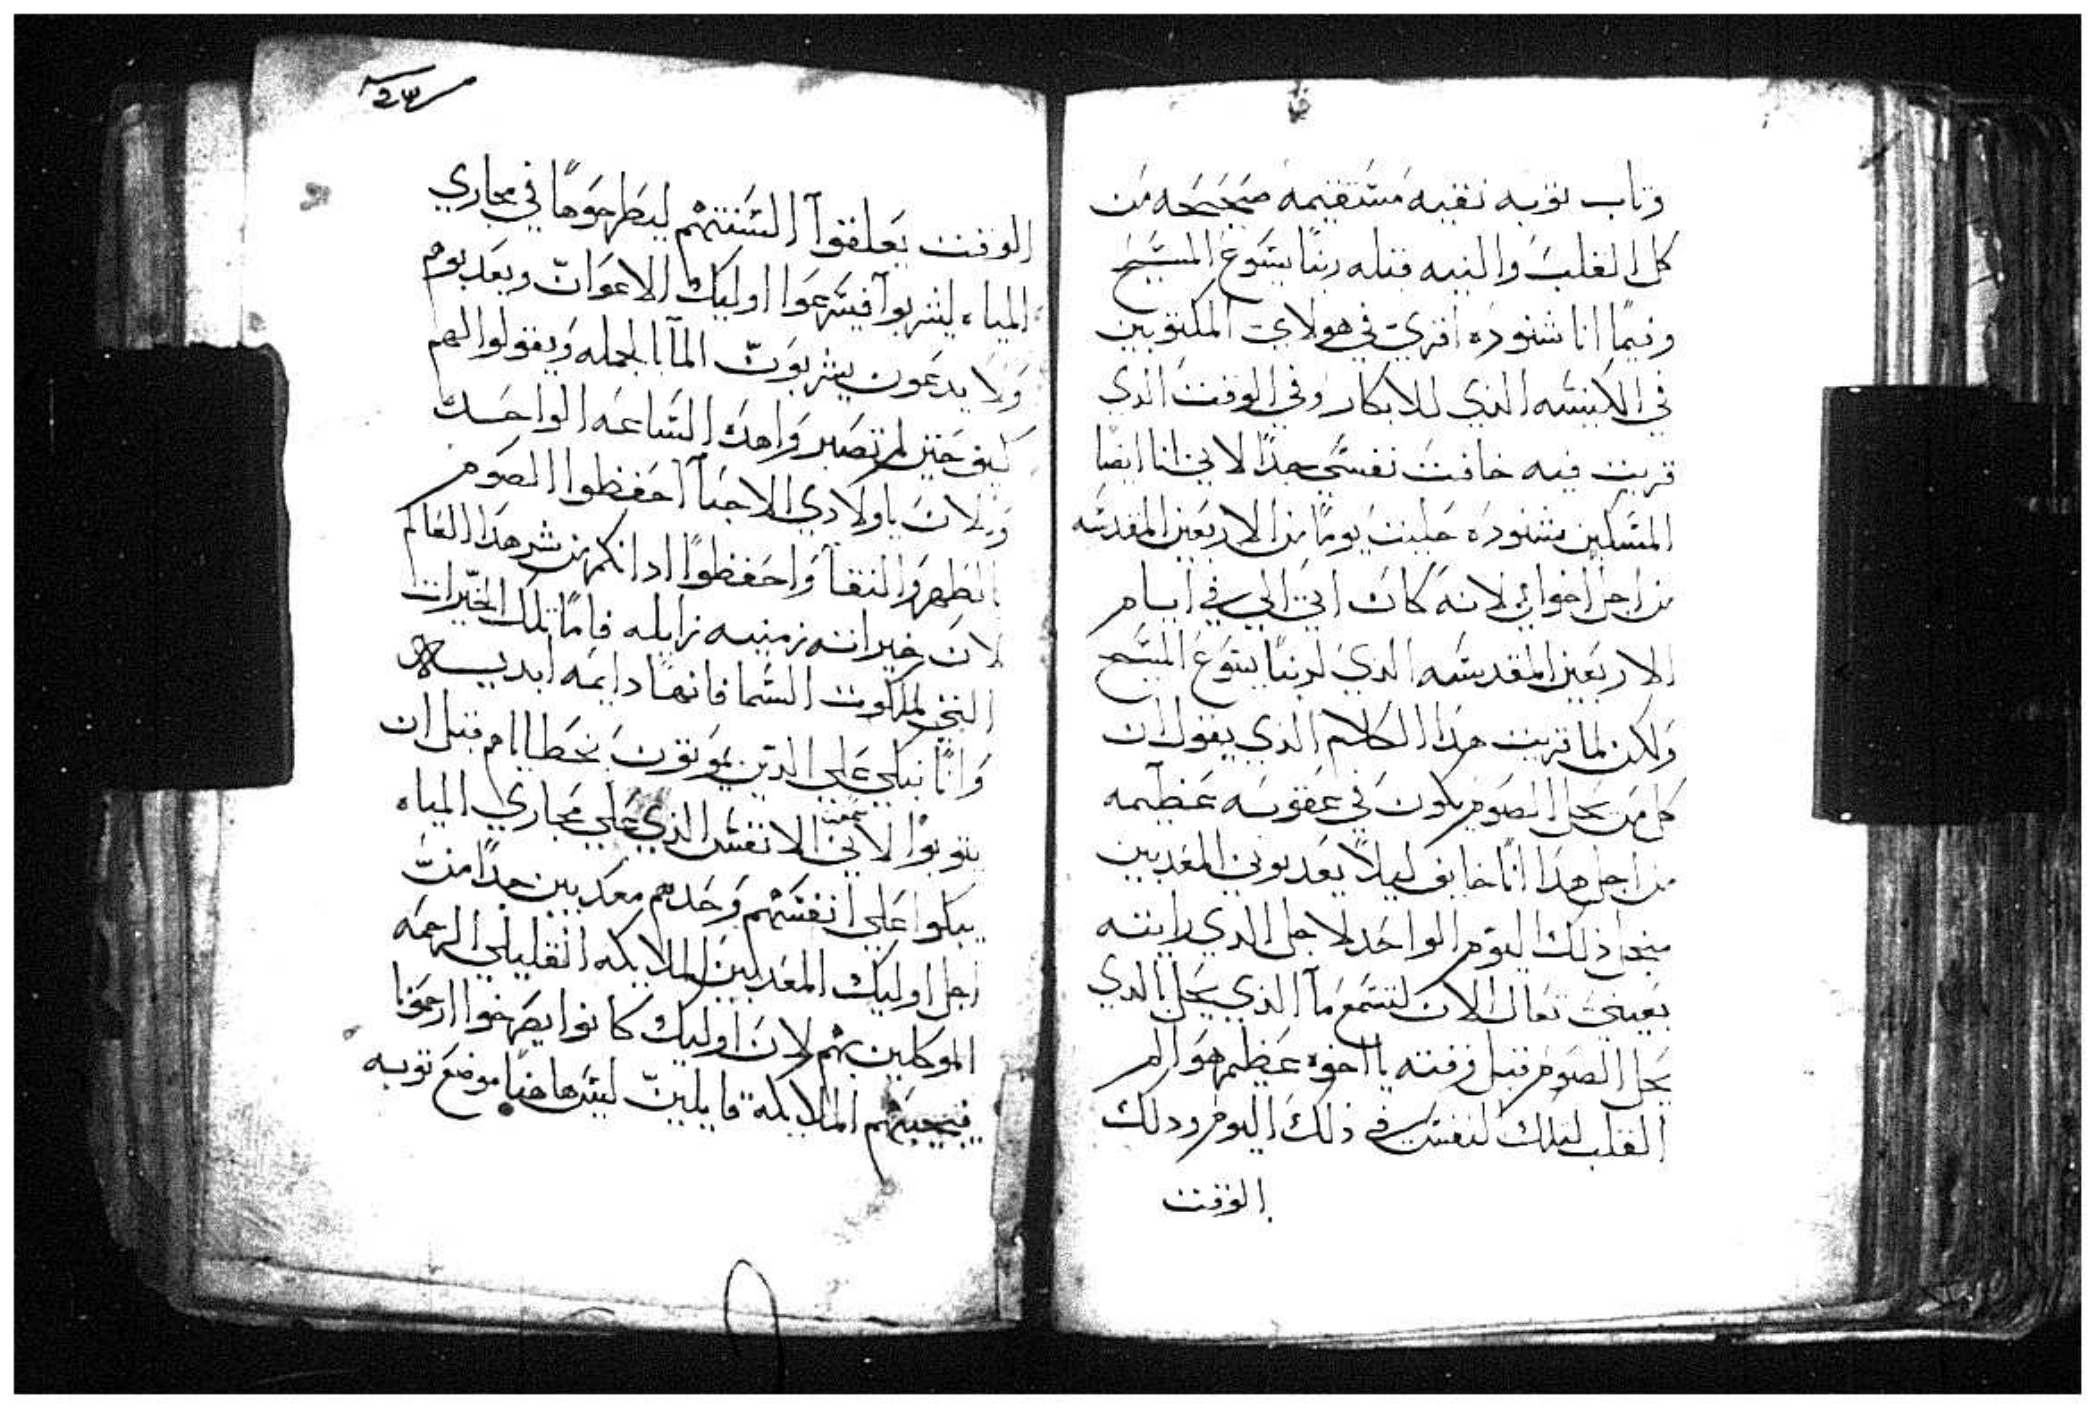 وتاب توبه نقيه مستقيمه صحيحه من
كل القلب والنيه قبله ربنا يسوع المسيح
وفيما انا شنوده اقري في هولاي المكتوبين
في الكنيسه الذي للابكار وفي الوقت الذي
قريت فيه خافت نفسي جدا لاني انا ايضا
المسكين شنوده حليت يوما من الاربعين المقدسه
من اجل اخواني لانه كان اتي الي في ايام
الاربعين المقدسه الذي لربنا يسوع المسيح
ولكن لما قريت هدا الكلام الذي يقول ان
كل من يحل الصوم يكون في عقوبه عظيمه
من اجل هدا انا خايف ليلا يعدبوني المعدبين
ذلك اليوم الواحد لاجل الدي رايته
بعيني تعال الان لتسمع ما الذي يحل بالدي
يحل الصوم قبل وقته يا اخوه عظيم هو الم
القلب لتلك النفس في ذلك اليوم ودلك
الوقت
الوقت يعلقوا السنتهم ليطرحوها في مجاري
المياه ليشربوا فيسرعوا اوليك الاعوان وبعد يوم
ولا يدعون يشربون الما بالجمله ويقولوا لهم
كيف حتي لم تصبروا هدك الساعه الواحده
والان يا ولادي الاحبا احفظوا الصوم
الطهر والنقا واحفظوا اداتكم من شر هدا العالم
لان خيراته زمنيه زايله فاما تلك الخيرات
التي لملكوت السما فانها دايمه ابديه
وانا نبكي علي الدين يموتون بخطاياهم قبل ان
يتوبوا لاني سمعت الانفس الذي علي مجاري المياه
يبكوا علي انفسهم وحدهم معدبين جدا من
اجل اوليك المعدبين الملايكه القليلي الرحمه
الموكلين بهم لان اوليك كانوا يصرخوا ارحمونا
فيجيبهم الملايكه قايلين ليس هاهنا موضع توبه